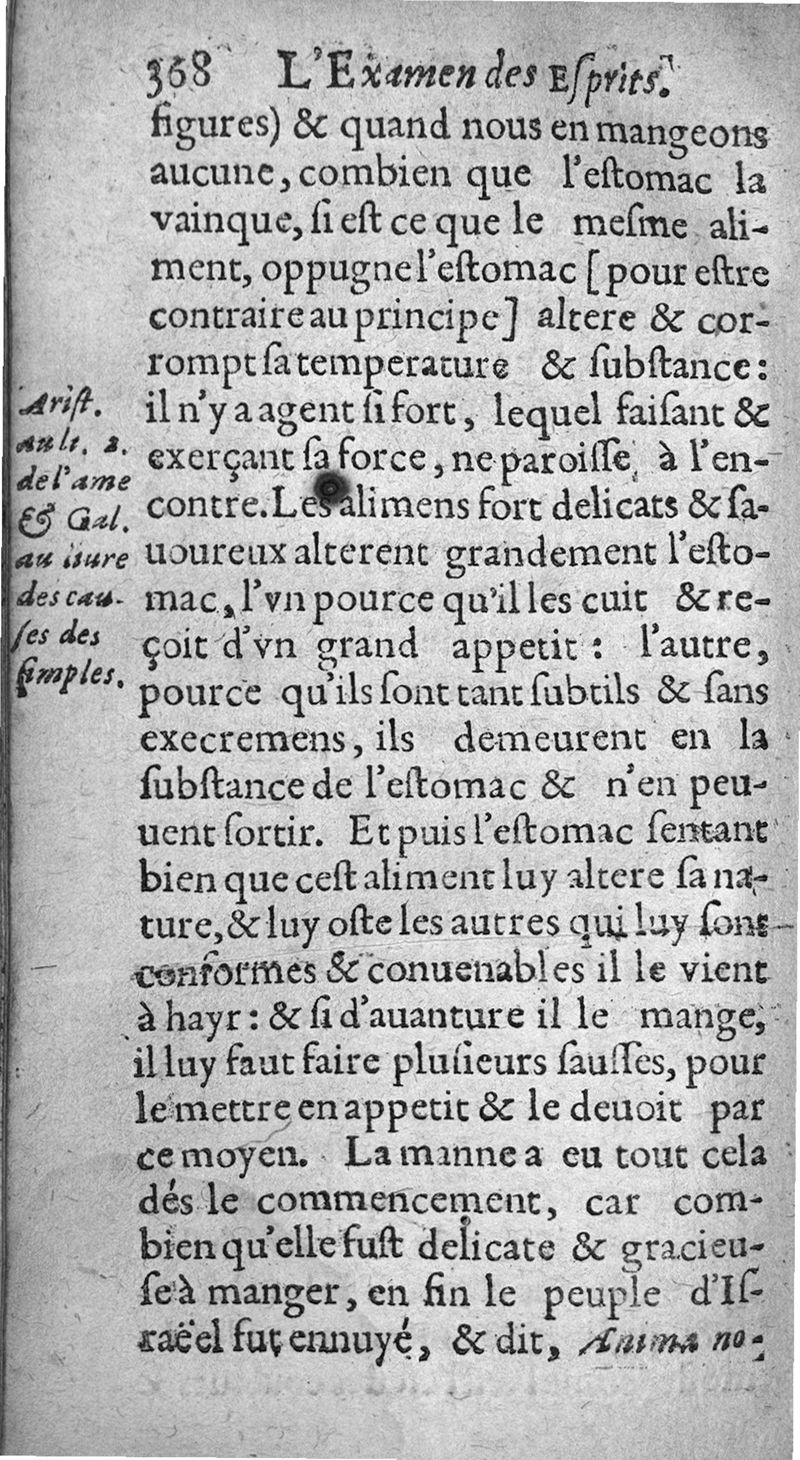 368 L'Examen des Eſprits.
figures) & quand nous en mangeons
aucune, combien que l'eſtomac la
vainque, ſi eſt ce que le meſme ali-
ment, oppugne l'eſtomac [pour eſtre
contraire au principe] altere & cor-
rompt ſa temperature & ſubſtance:
il n'y a agent ſi fort, lequel faiſant &
exerçant ſa force, ne paroiſſe à l'en-
contre. Les alimens fort delicats & ſa-
uoureux alterent grandement l'eſto-
mac, l'vn pource qu'il les cuit & re-
çoit d'vn grand appetit: l'autre,
pource qu'ils ſont tant ſubtils & ſans
execremens, ils demeurent en la
ſubſtance de l'eſtomac & n'en peu-
uent ſortir. Et puis l'eſtomac ſentant
bien que ceſt aliment luy altere ſa na-
ture, & luy oſte les autres qui luy ſont
conformes & conuenables il le vient
à hayr: & ſi d'auanture il le mange,
il luy faut faire pluſieurs ſauſſes, pour
le mettre en appetit & le deuoit par
ce moyen. La manne a eu tout cela
dés le commencement, car com-
bien qu'elle fuſt delicate & gracieu-
ſe à manger, en fin le peuple d'Iſ-
raëel fut ennuyé, & dit, Anima no-
Ariſt.
au lt. 2.
de l'ame
& Gal.
au liure
des cau-
ſes des
ſimples.